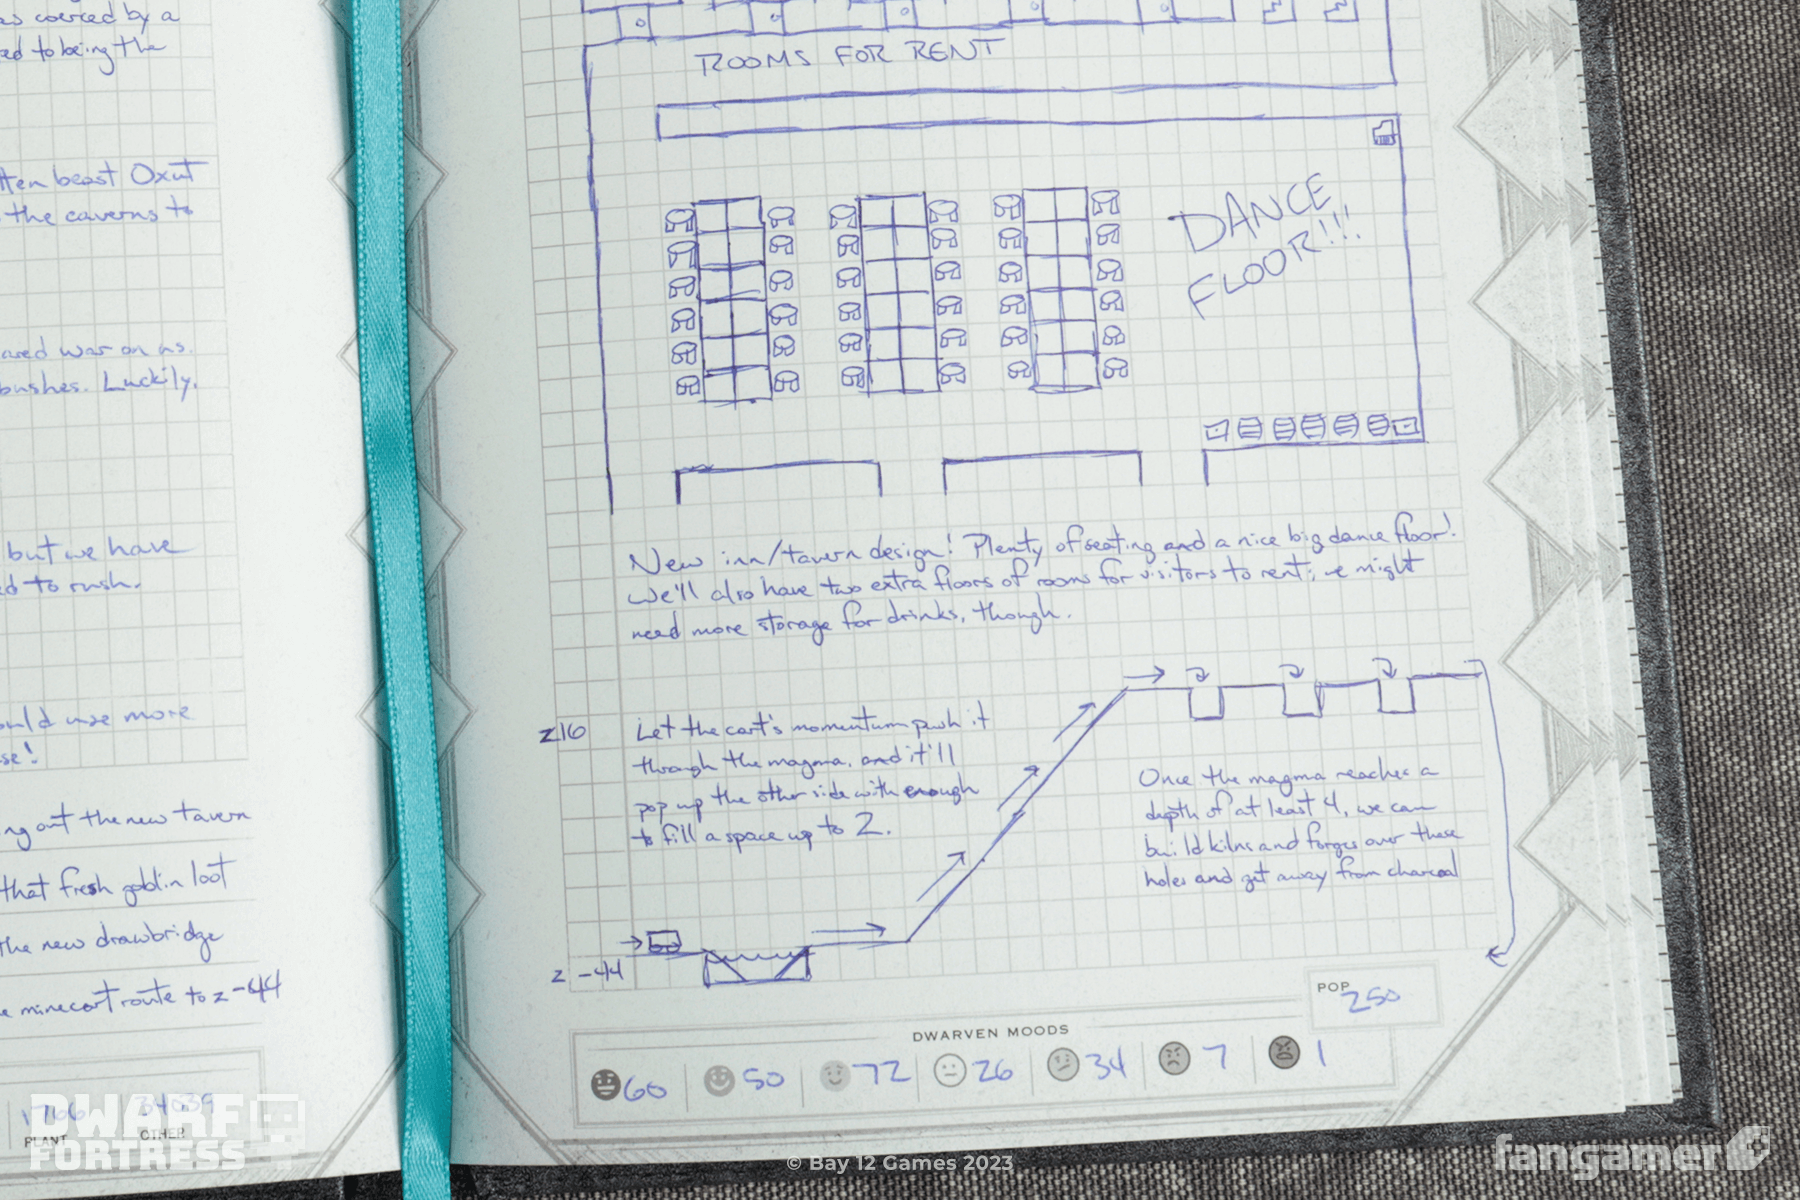 as covered by a
ed to being the
tten beast Oxut
the caverns to
ared war on us.
bushes. Luckily,
but we have
ed to rush.
ould use more
se!
ng out the new tavern
that fresh goblin loot
the new drawbridge
e minecart route to z-44
1766
34039
PLANT
OTHER
ROOMS FOR RENT
DANCE
FLOOR!!!
New inn/tavern design! Plenty of seating and a nice big dance floor!
We'll also have two extra floors of rooms for visitors to rent; we might
need more storage for drinks, though.
z16
Let the cart's momentum push it
through the magma, and it'll
pop up the other side with enough
to fill a space up to 2.
Once the magma reaches a
depth of at least 4, we can
build kilns and forges over these
holes and get away from charcoal
z -44
POP
250
DWARVEN MOODS
60 50 72 26 34 7 1
DWARF
FORTRESS
© Bay 12 Games 2023
fangamer